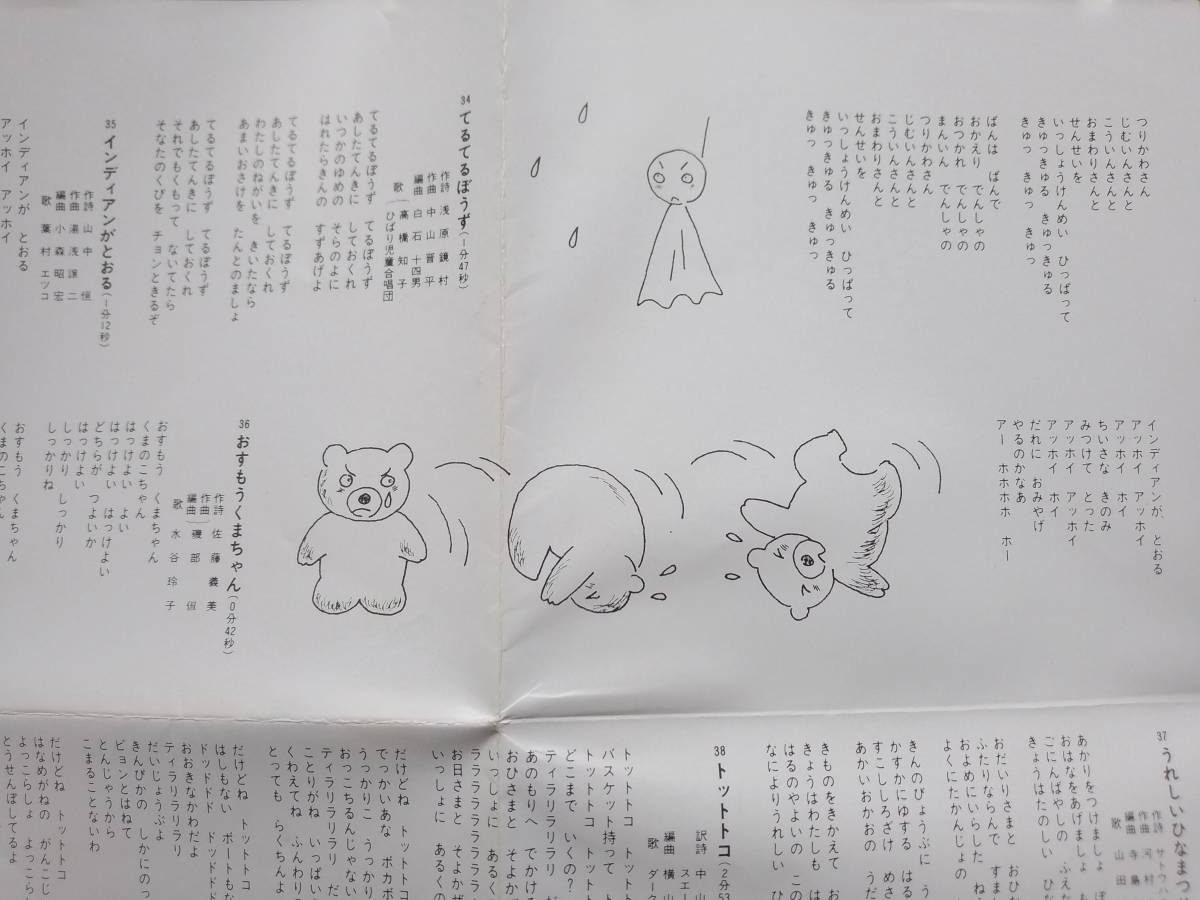 つりかわさん
じむいんさんと
こういんさんと
おまわりさんと
せんせいを
いっしょうけんめい ひっぱって
きゅっきゅる きゅっきゅる
きゅっ きゅっ きゅっ
ばんは ばんで
おかえり でんしゃの
おつかれ でんしゃの
まんいん でんしゃの
つりかわさん
じむいんさんと
こういんさんと
おまわりさんと
せんせいを
いっしょうけんめい ひっぱって
きゅっきゅる きゅっきゅる
きゅっ きゅっ きゅっ
34 てるてるぼうず(1分47秒)
作詩 浅原鏡村
作曲 中山晋平
編曲 白石十四男
歌 高橋知子
ひばり児童合唱団
てるてるぼうず てるぼうず
あしたてんきに しておくれ
いつかのゆめの そらのよに
はれたらきんの すずあげよ
てるてるぼうず てるぼうず
あしたてんきに しておくれ
わたしのねがいを きいたなら
あまいおさけを たんとのましょ
てるてるぼうず てるぼうず
あしたてんきに しておくれ
それでもくもって ないてたら
そなたのくびを チョンときるぞ
35 インディアンがとおる(1分12秒)
作詩 山中 恒
作曲 湯浅譲二
編曲 小森昭宏
歌 葉村エツコ
インディアンが とおる
アッホイ アッホイ
インディアンが、とおる
アッホイ アッホイ
アッホイ ホイ
ちいさな きのみ
みつけて とった
アッホイ アッホイ
アッホイ ホイ
だれに おみやげ
やるのかなあ
アー ホホホホ ホー
36 おすもうくまちゃん(0分42秒)
作詩 佐藤義美
作曲
編曲 磯部 俶
歌 水谷玲子
おすもう くまちゃん
くまのこちゃん
はっけよい よい
はっけよい はっけよい
どちらが つよいか
はっけよい
しっかり しっかり
しっかりね
おすもう くまちゃん
くまのこちゃん
37 うれしいひなまつ
作詩 サトウハ
作曲 河村
編曲 寺島
歌 山田
あかりをつけましょ
おはなをあげましょ
ごにんばやしの ふえた
きょうはたのしい ひな
おだいりさまと おひ
ふたりならんで すま
およめにいらした ねえ
よくにたかんじょの
きんのびょうぶに う
かすかにゆする はる
すこししろざけ めさ
あかいおかおの うだ
きものをきかえて お
きょうはわたしも は
はるのやよいの この
なによりうれしい ひ
38 トットトコ(2分53
訳詩 中山
作曲 スエー
編曲 横山
歌 ダーク
トットトコ トット
バスケット持って
トットトコ トット
どこまで いくの?
ティラリラリラリ
あのもりへ でかけ
おひさまと そよか
いっしょに あるく
ラララララララ
お日さまと そよかぜ
いっしょに あるくの
だけどね トットトコ
でっかいあな ボカボ
うっかりこ うっかり
おっこちるんじゃない
ティラリラリラリ だ
ことりがね いっぱい
くわえてね ふんわり
とっても らくちんよ
だけどね トットトコ
はしもない ボートもな
ドッドドド ドッドドド
おおきなかわだよ
ティラリラリラリ
だいじょうぶよ
きんぴかの しかにのっ
ピョンとはねて
とんじゃうから
こまることないわ
だけどね トットトコ
はなめがねの がんこじ
よっこらしょ よっこら
とうせんぼしてるよ